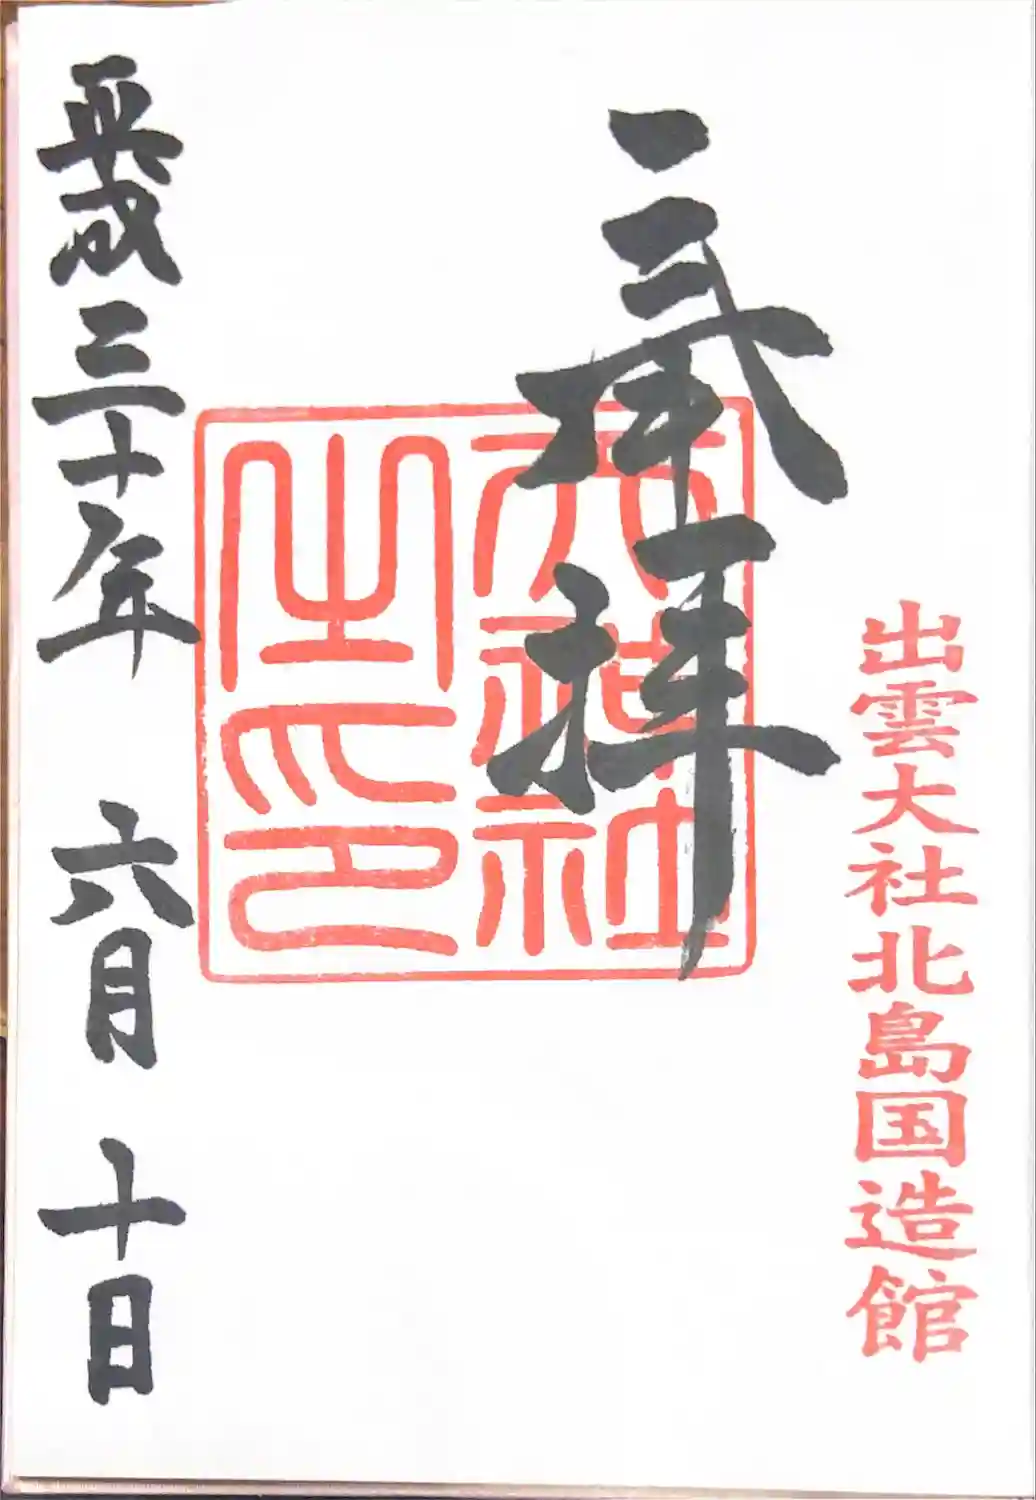 出雲大社北島国造館
奉拝
天神社
之印
平成三十年 六月 十日